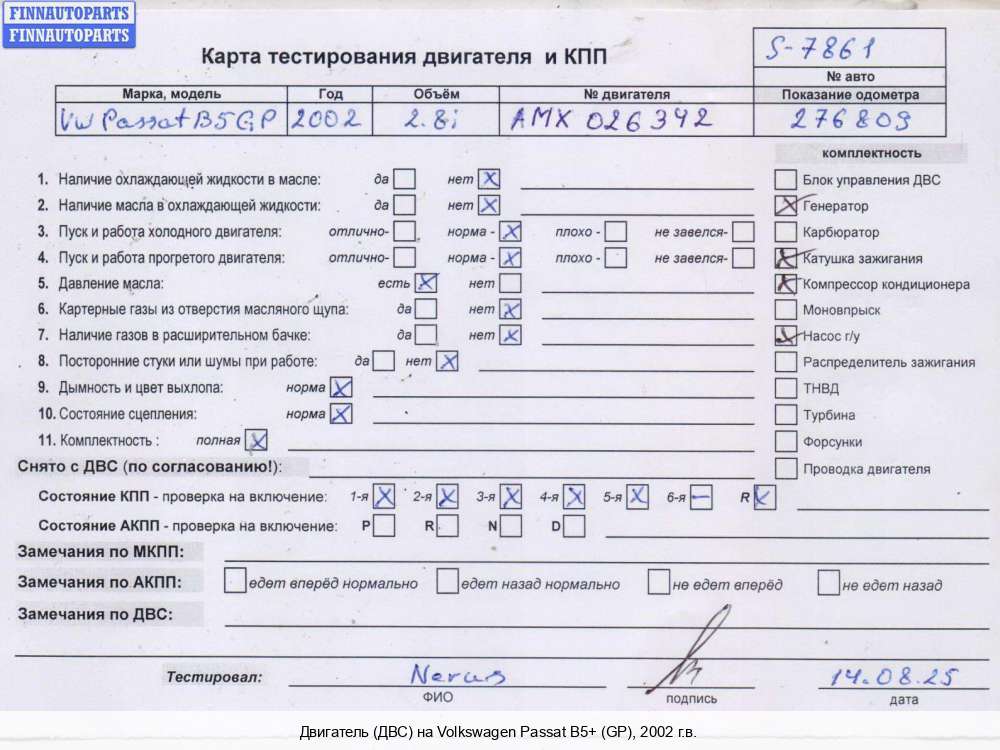 FINNAUTOPARTS
FINNAUTOPARTS
Карта тестирования двигателя и КПП
S-7861
№ авто
Марка, модель Год Объём № двигателя Показание одометра
VW Passat B5GP 2002 2.8i AMX 026342 276809
комплектность
1. Наличие охлаждающей жидкости в масле: да нет X
2. Наличие масла в охлаждающей жидкости: да нет X
3. Пуск и работа холодного двигателя: отлично- норма - X плохо - не завелся-
4. Пуск и работа прогретого двигателя: отлично- норма - X плохо - не завелся-
5. Давление масла: есть X нет
6. Картерные газы из отверстия масляного щупа: да нет X
7. Наличие газов в расширительном бачке: да нет X
8. Посторонние стуки или шумы при работе: да нет X
9. Дымность и цвет выхлопа: норма X
10. Состояние сцепления: норма X
11. Комплектность : полная X
Блок управления ДВС
X Генератор
Карбюратор
X Катушка зажигания
X Компрессор кондиционера
Моновпрыск
X Насос г/у
Распределитель зажигания
ТНВД
Турбина
Форсунки
Проводка двигателя
Снято с ДВС (по согласованию!):
Состояние КПП - проверка на включение: 1-я X 2-я X 3-я X 4-я X 5-я X 6-я — R X
Состояние АКПП - проверка на включение: P R N D
Замечания по МКПП:
Замечания по АКПП: едет вперёд нормально едет назад нормально не едет вперёд не едет назад
Замечания по ДВС:
Тестировал: 14.08.25
ФИО подпись дата
Двигатель (ДВС) на Volkswagen Passat B5+ (GP), 2002 г.в.